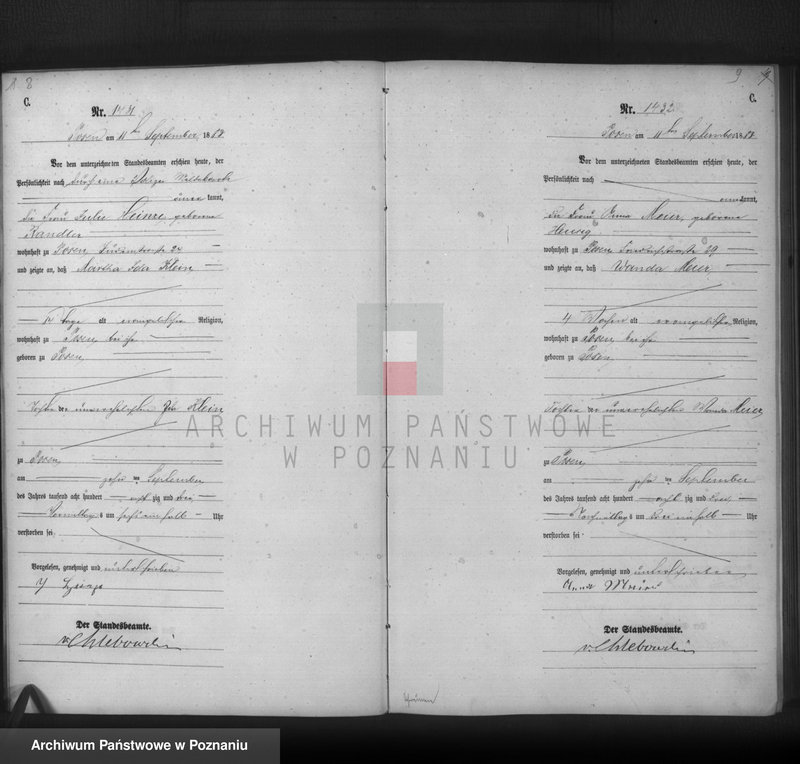 8
C.
Nr. 1431
Posen am 11ten September 18
Vor dem unterzeichneten Standesbeamten erschien heute, der
Persönlichkeit nach durch eine
kannt,
die Frau Julie Heinze, geborene
Kandler
wohnhaft zu Posen 24
und zeigte an, daß Martha Ida Klein
Tage alt evangelischer Religion,
wohnhaft zu Posen bei ihr
geboren zu Posen,
Tochter der unverehelichten Ida Klein
zu Posen,
am zehn ten September
des Jahres tausend acht hundert acht zig und drei
Vormittags um halb Uhr
verstorben sei
Vorgelesen, genehmigt und unterschrieben
J Heinze
Der Standesbeamte.
v. Chlebowski
9
C.
Nr. 1432
Posen am 11ten September 18
Vor dem unterzeichneten Standesbeamten erschien heute, der
Persönlichkeit nach
kannt,
die Frau Anna Meier, geborene
wohnhaft zu Posen 29
und zeigte an, daß Wanda Meier
4 Wochen alt evangelischer Religion,
wohnhaft zu Posen bei ihr
geboren zu Posen,
Tochter der unverehelichten Wanda Meier
zu Posen,
am zehn ten September
des Jahres tausend acht hundert acht zig und drei
Nachmittags um drei einhalb Uhr
verstorben sei
Vorgelesen, genehmigt und unterschrieben
Anna Meier
Der Standesbeamte.
v. Chlebowski
ARCHIWUM PAŃSTWOWE
W POZNANIU
Archiwum Państwowe w Poznaniu